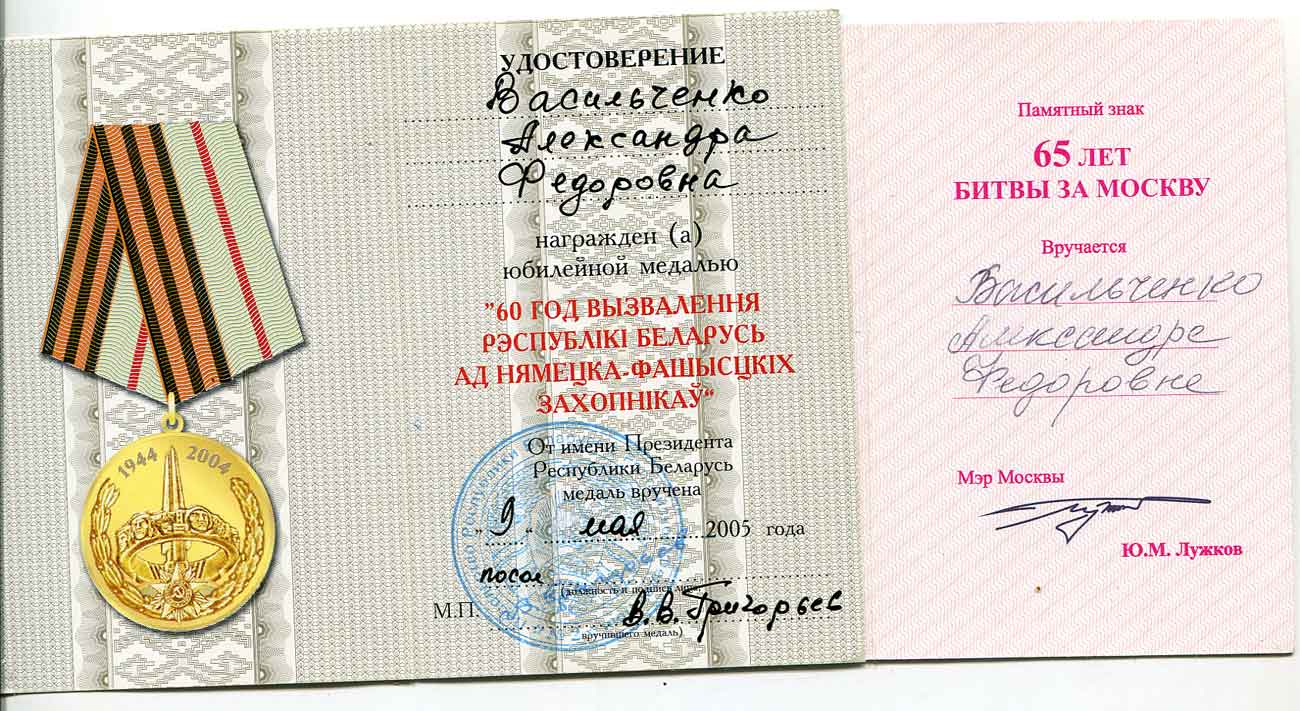 1944 2004
УДОСТОВЕРЕНИЕ
Васильченко
Александра
Федоровна
награжден (а)
юбилейной медалью
"60 ГОД ВЫЗВАЛЕННЯ
РЭСПУБЛІКІ БЕЛАРУСЬ
АД НЯМЕЦКА-ФАШЫСЦКІХ
ЗАХОПНІКАЎ"
От имени Президента
Республики Беларусь
медаль вручена
"9" мая 2005 года
посол
(должность и подпись лица,
М.П. В.В. Григорьев
вручившего медаль)
Памятный знак
65 ЛЕТ
БИТВЫ ЗА МОСКВУ
Вручается
Васильченко
Александре
Федоровне
Мэр Москвы
Ю.М. Лужков